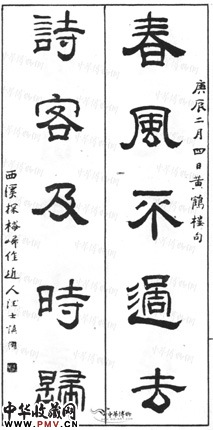 庚辰二月四日黃鶴樓句
春風不過去
詩客及時歸
西溪探梅歸作近人
中华博物
中华收藏网
www.PMV.CN